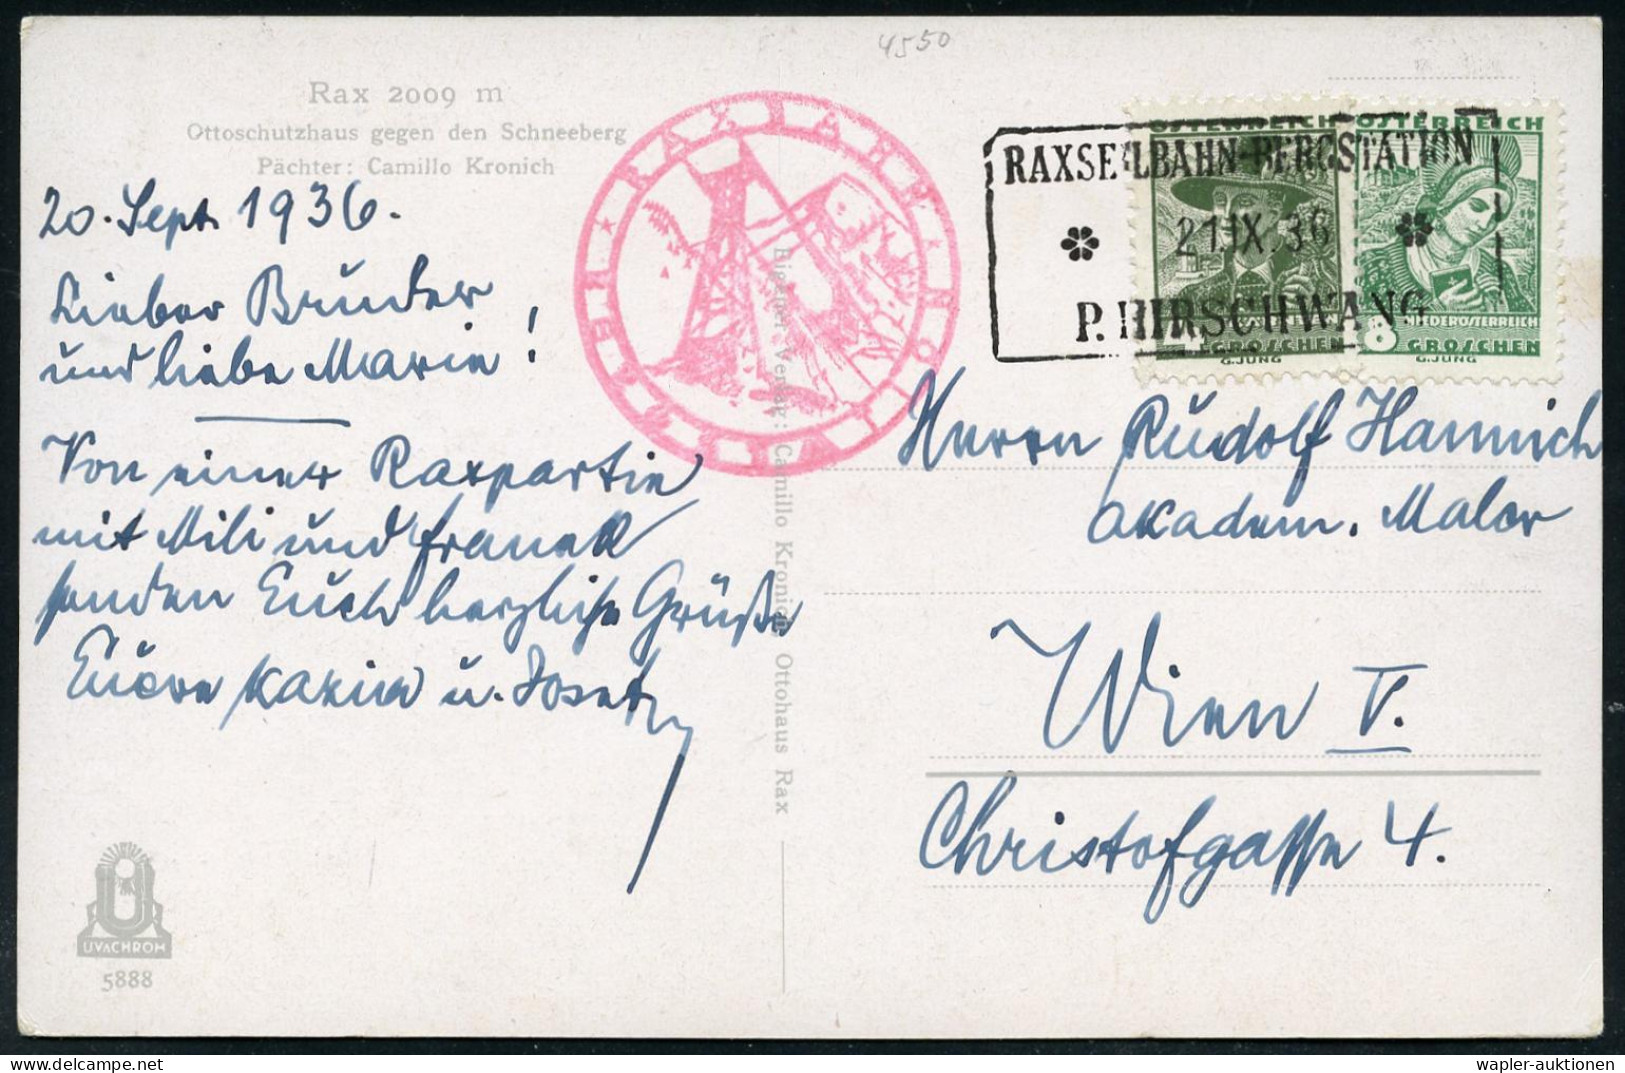 4550
Rax 2009 m
Ottoschutzhaus gegen den Schneeberg
Pächter: Camillo Kronich
20. Sept. 1936.
Lieber Bruder
und liebe Marie!
Von einer Raxpartie
mit Mili und Franak
senden Euch herzliche Grüße
Eüere u. Josef
UVACHROM
5888
Eigener Verlag: Camillo Kronich, Ottohaus Rax
ÖSTERREICH
ÖSTERREICH
RAXSEILBAHN-BERGSTATION
21 IX 36
P. HIRSCHWANG
GROSCHEN
G.JUNG
8
NIEDERÖSTERREICH
GROSCHEN
G.JUNG
Herrn Rudolf Hannich
akadem. Maler
Wien V.
Christofgasse 4.
wapler-auktionen